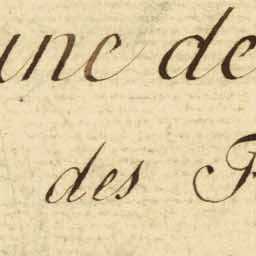 une de
des F